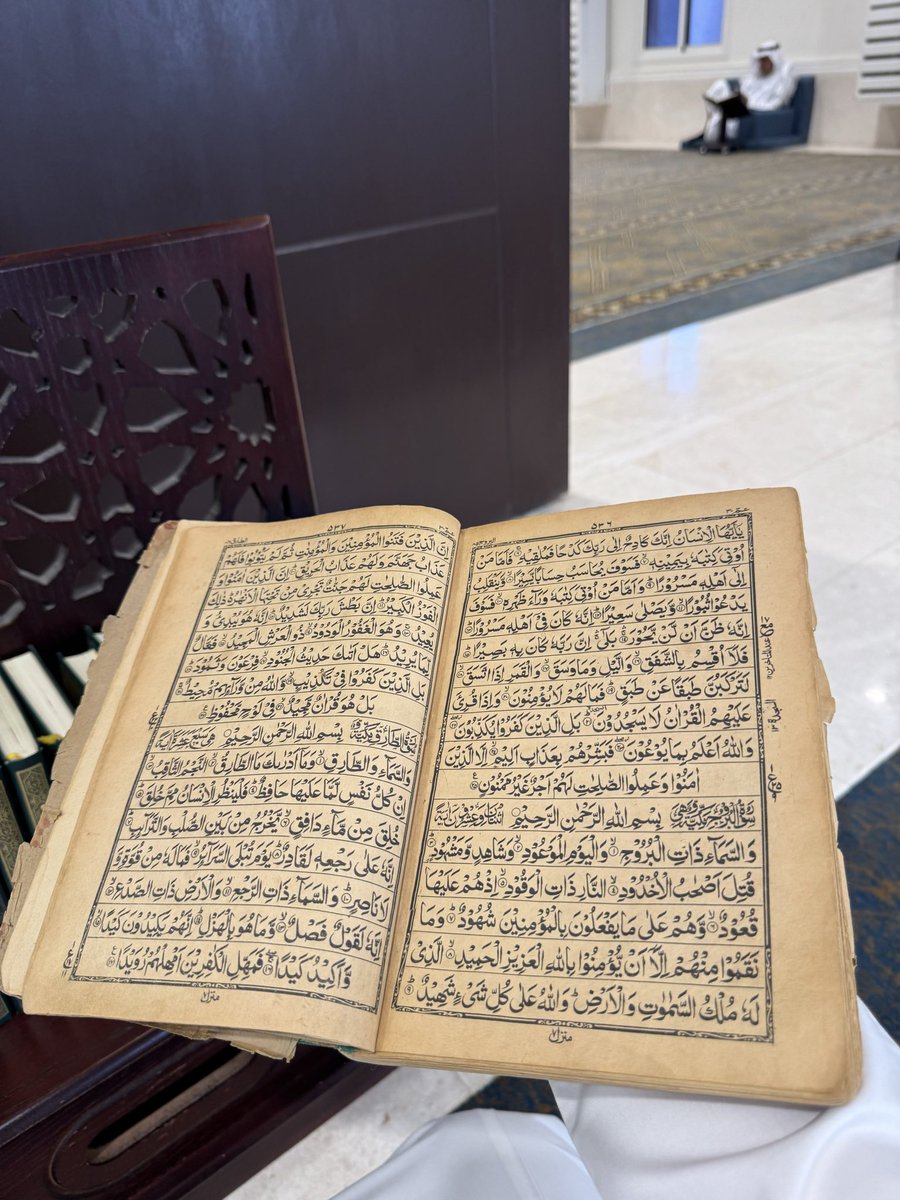 ٥٣٦
يٰۤاَيُّهَا الْاِنْسَانُ اِنَّكَ كَادِحٌ اِلٰى رَبِّكَ كَدْحًا فَمُلٰقِيْهِ ۚ۶ فَاَمَّا مَنْ
اُوْتِيَ كِتٰبَهٗ بِيَمِيْنِهٖ ۙ۷ فَسَوْفَ يُحَاسَبُ حِسَابًا يَّسِيْرًا ۙ۸ وَّيَنْقَلِبُ
اِلٰۤى اَهْلِهٖ مَسْرُوْرًا ؕ۹ وَاَمَّا مَنْ اُوْتِيَ كِتٰبَهٗ وَرَآءَ ظَهْرِهٖ ۙ۱۰ فَسَوْفَ
يَدْعُوْا ثُبُوْرًا ۙ۱۱ وَّيَصْلٰى سَعِيْرًا ؕ۱۲ اِنَّهٗ كَانَ فِيْۤ اَهْلِهٖ مَسْرُوْرًا ؕ۱۳
اِنَّهٗ ظَنَّ اَنْ لَّنْ يَّحُوْرَ ۚ۱۴ بَلٰۤى ۚ اِنَّ رَبَّهٗ كَانَ بِهٖ بَصِيْرًا ؕ۱۵
فَلَاۤ اُقْسِمُ بِالشَّفَقِ ۙ۱۶ وَالَّيْلِ وَمَا وَسَقَ ۙ۱۷ وَالْقَمَرِ اِذَا اتَّسَقَ ۙ۱۸
لَتَرْكَبُنَّ طَبَقًا عَنْ طَبَقٍ ؕ۱۹ فَمَا لَهُمْ لَا يُؤْمِنُوْنَ ۙ۲۰ وَاِذَا قُرِئَ
عَلَيْهِمُ الْقُرْاٰنُ لَا يَسْجُدُوْنَ ؕ۲۱ بَلِ الَّذِيْنَ كَفَرُوْا يُكَذِّبُوْنَ ۖ۲۲
وَاللّٰهُ اَعْلَمُ بِمَا يُوْعُوْنَ ۖ۲۳ فَبَشِّرْهُمْ بِعَذَابٍ اَلِيْمٍ ۙ۲۴ اِلَّا الَّذِيْنَ
اٰمَنُوْا وَعَمِلُوا الصّٰلِحٰتِ لَهُمْ اَجْرٌ غَيْرُ مَمْنُوْنٍ ۲۵
بِسْمِ اللّٰهِ الرَّحْمٰنِ الرَّحِيْمِ
وَالسَّمَآءِ ذَاتِ الْبُرُوْجِ ۙ۱ وَالْيَوْمِ الْمَوْعُوْدِ ۙ۲ وَشَاهِدٍ وَّمَشْهُوْدٍ ؕ۳
قُتِلَ اَصْحٰبُ الْاُخْدُوْدِ ۙ۴ النَّارِ ذَاتِ الْوَقُوْدِ ۙ۵ اِذْ هُمْ عَلَيْهَا
قُعُوْدٌ ۙ۶ وَّهُمْ عَلٰى مَا يَفْعَلُوْنَ بِالْمُؤْمِنِيْنَ شُهُوْدٌ ؕ۷ وَمَا
نَقَمُوْا مِنْهُمْ اِلَّاۤ اَنْ يُّؤْمِنُوْا بِاللّٰهِ الْعَزِيْزِ الْحَمِيْدِ ۙ۸ الَّذِيْ
لَهٗ مُلْكُ السَّمٰوٰتِ وَالْاَرْضِ ؕ وَاللّٰهُ عَلٰى كُلِّ شَيْءٍ شَهِيْدٌ ؕ۹
منزل ۷
٥٣٧
اِنَّ الَّذِيْنَ فَتَنُوا الْمُؤْمِنِيْنَ وَالْمُؤْمِنٰتِ ثُمَّ لَمْ يَتُوْبُوْا فَلَهُمْ
عَذَابُ جَهَنَّمَ وَلَهُمْ عَذَابُ الْحَرِيْقِ ؕ۱۰ اِنَّ الَّذِيْنَ اٰمَنُوْا وَ
عَمِلُوا الصّٰلِحٰتِ لَهُمْ جَنّٰتٌ تَجْرِيْ مِنْ تَحْتِهَا الْاَنْهٰرُ ؕ ذٰلِكَ
الْفَوْزُ الْكَبِيْرُ ؕ۱۱ اِنَّ بَطْشَ رَبِّكَ لَشَدِيْدٌ ؕ۱۲ اِنَّهٗ هُوَ يُبْدِئُ وَ
يُعِيْدُ ۚ۱۳ وَهُوَ الْغَفُوْرُ الْوَدُوْدُ ۙ۱۴ ذُو الْعَرْشِ الْمَجِيْدُ ۙ۱۵ فَعَّالٌ
لِّمَا يُرِيْدُ ؕ۱۶ هَلْ اَتٰىكَ حَدِيْثُ الْجُنُوْدِ ۙ۱۷ فِرْعَوْنَ وَثَمُوْدَ ؕ۱۸
بَلِ الَّذِيْنَ كَفَرُوْا فِيْ تَكْذِيْبٍ ۙ۱۹ وَّاللّٰهُ مِنْ وَّرَآئِهِمْ مُّحِيْطٌ ۚ۲۰
بَلْ هُوَ قُرْاٰنٌ مَّجِيْدٌ ۙ۲۱ فِيْ لَوْحٍ مَّحْفُوْظٍ ۲۲
بِسْمِ اللّٰهِ الرَّحْمٰنِ الرَّحِيْمِ
وَالسَّمَآءِ وَالطَّارِقِ ۙ۱ وَمَاۤ اَدْرٰىكَ مَا الطَّارِقُ ۙ۲ النَّجْمُ الثَّاقِبُ ۙ۳
اِنْ كُلُّ نَفْسٍ لَّمَّا عَلَيْهَا حَافِظٌ ؕ۴ فَلْيَنْظُرِ الْاِنْسَانُ مِمَّ خُلِقَ ؕ۵
خُلِقَ مِنْ مَّآءٍ دَافِقٍ ۙ۶ يَّخْرُجُ مِنْ بَيْنِ الصُّلْبِ وَالتَّرَآئِبِ ؕ۷
اِنَّهٗ عَلٰى رَجْعِهٖ لَقَادِرٌ ؕ۸ يَوْمَ تُبْلَى السَّرَآئِرُ ۙ۹ فَمَا لَهٗ مِنْ قُوَّةٍ وَّ
لَا نَاصِرٍ ؕ۱۰ وَالسَّمَآءِ ذَاتِ الرَّجْعِ ۙ۱۱ وَالْاَرْضِ ذَاتِ الصَّدْعِ ۙ۱۲
اِنَّهٗ لَقَوْلٌ فَصْلٌ ۙ۱۳ وَّمَا هُوَ بِالْهَزْلِ ؕ۱۴ اِنَّهُمْ يَكِيْدُوْنَ كَيْدًا ۙ۱۵
وَّاَكِيْدُ كَيْدًا ۖ۱۶ فَمَهِّلِ الْكٰفِرِيْنَ اَمْهِلْهُمْ رُوَيْدًا ۱۷
منزل ۷